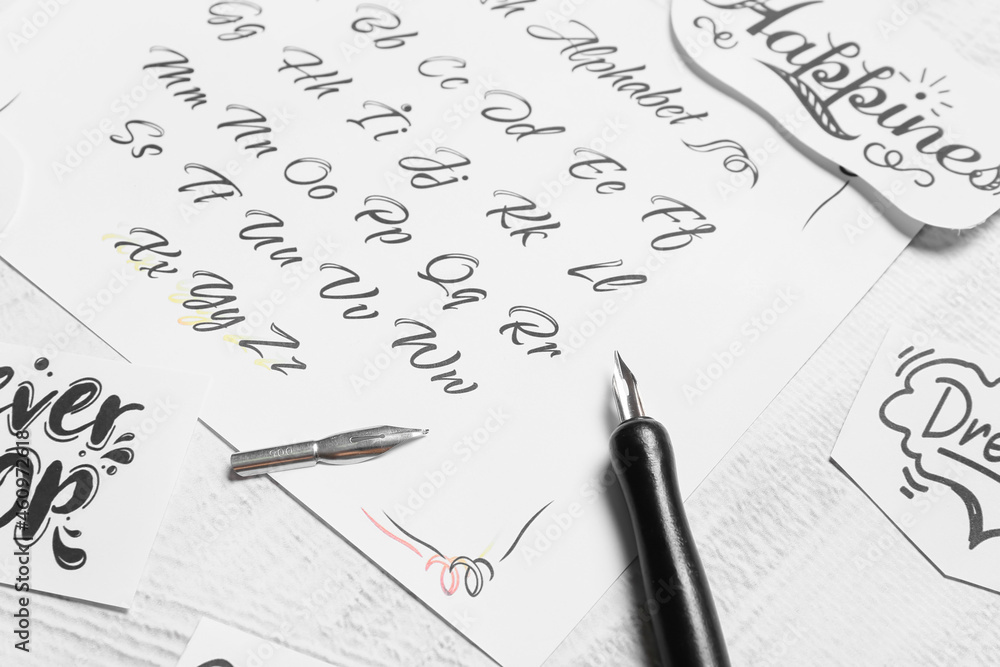 Alphabet
Bb
Cc
Dd
Ee
Ff
Gg
Hh
Ii
Jj
Kk
Ll
Mm
Nn
Oo
Pp
Qq
Rr
Ss
Tt
Uu
Vv
Ww
Xx
Yy
Zz
Happiness
ever
op
Dre
500
Adobe Stock | #460972618